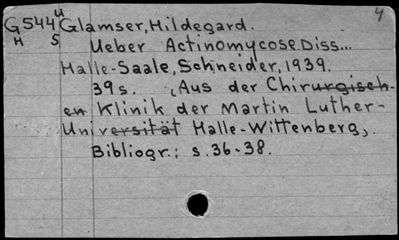 4
G544u Glamser, Hildegard.
H S Ueber Actinomycose. Diss...
Halle-Saale, Schneider, 1939.
39 s. (Aus der Chirurgisch-
en Klinik der Martin Luther-
Universität Halle-Wittenberg,.
Bibliogr.: s. 36-38.